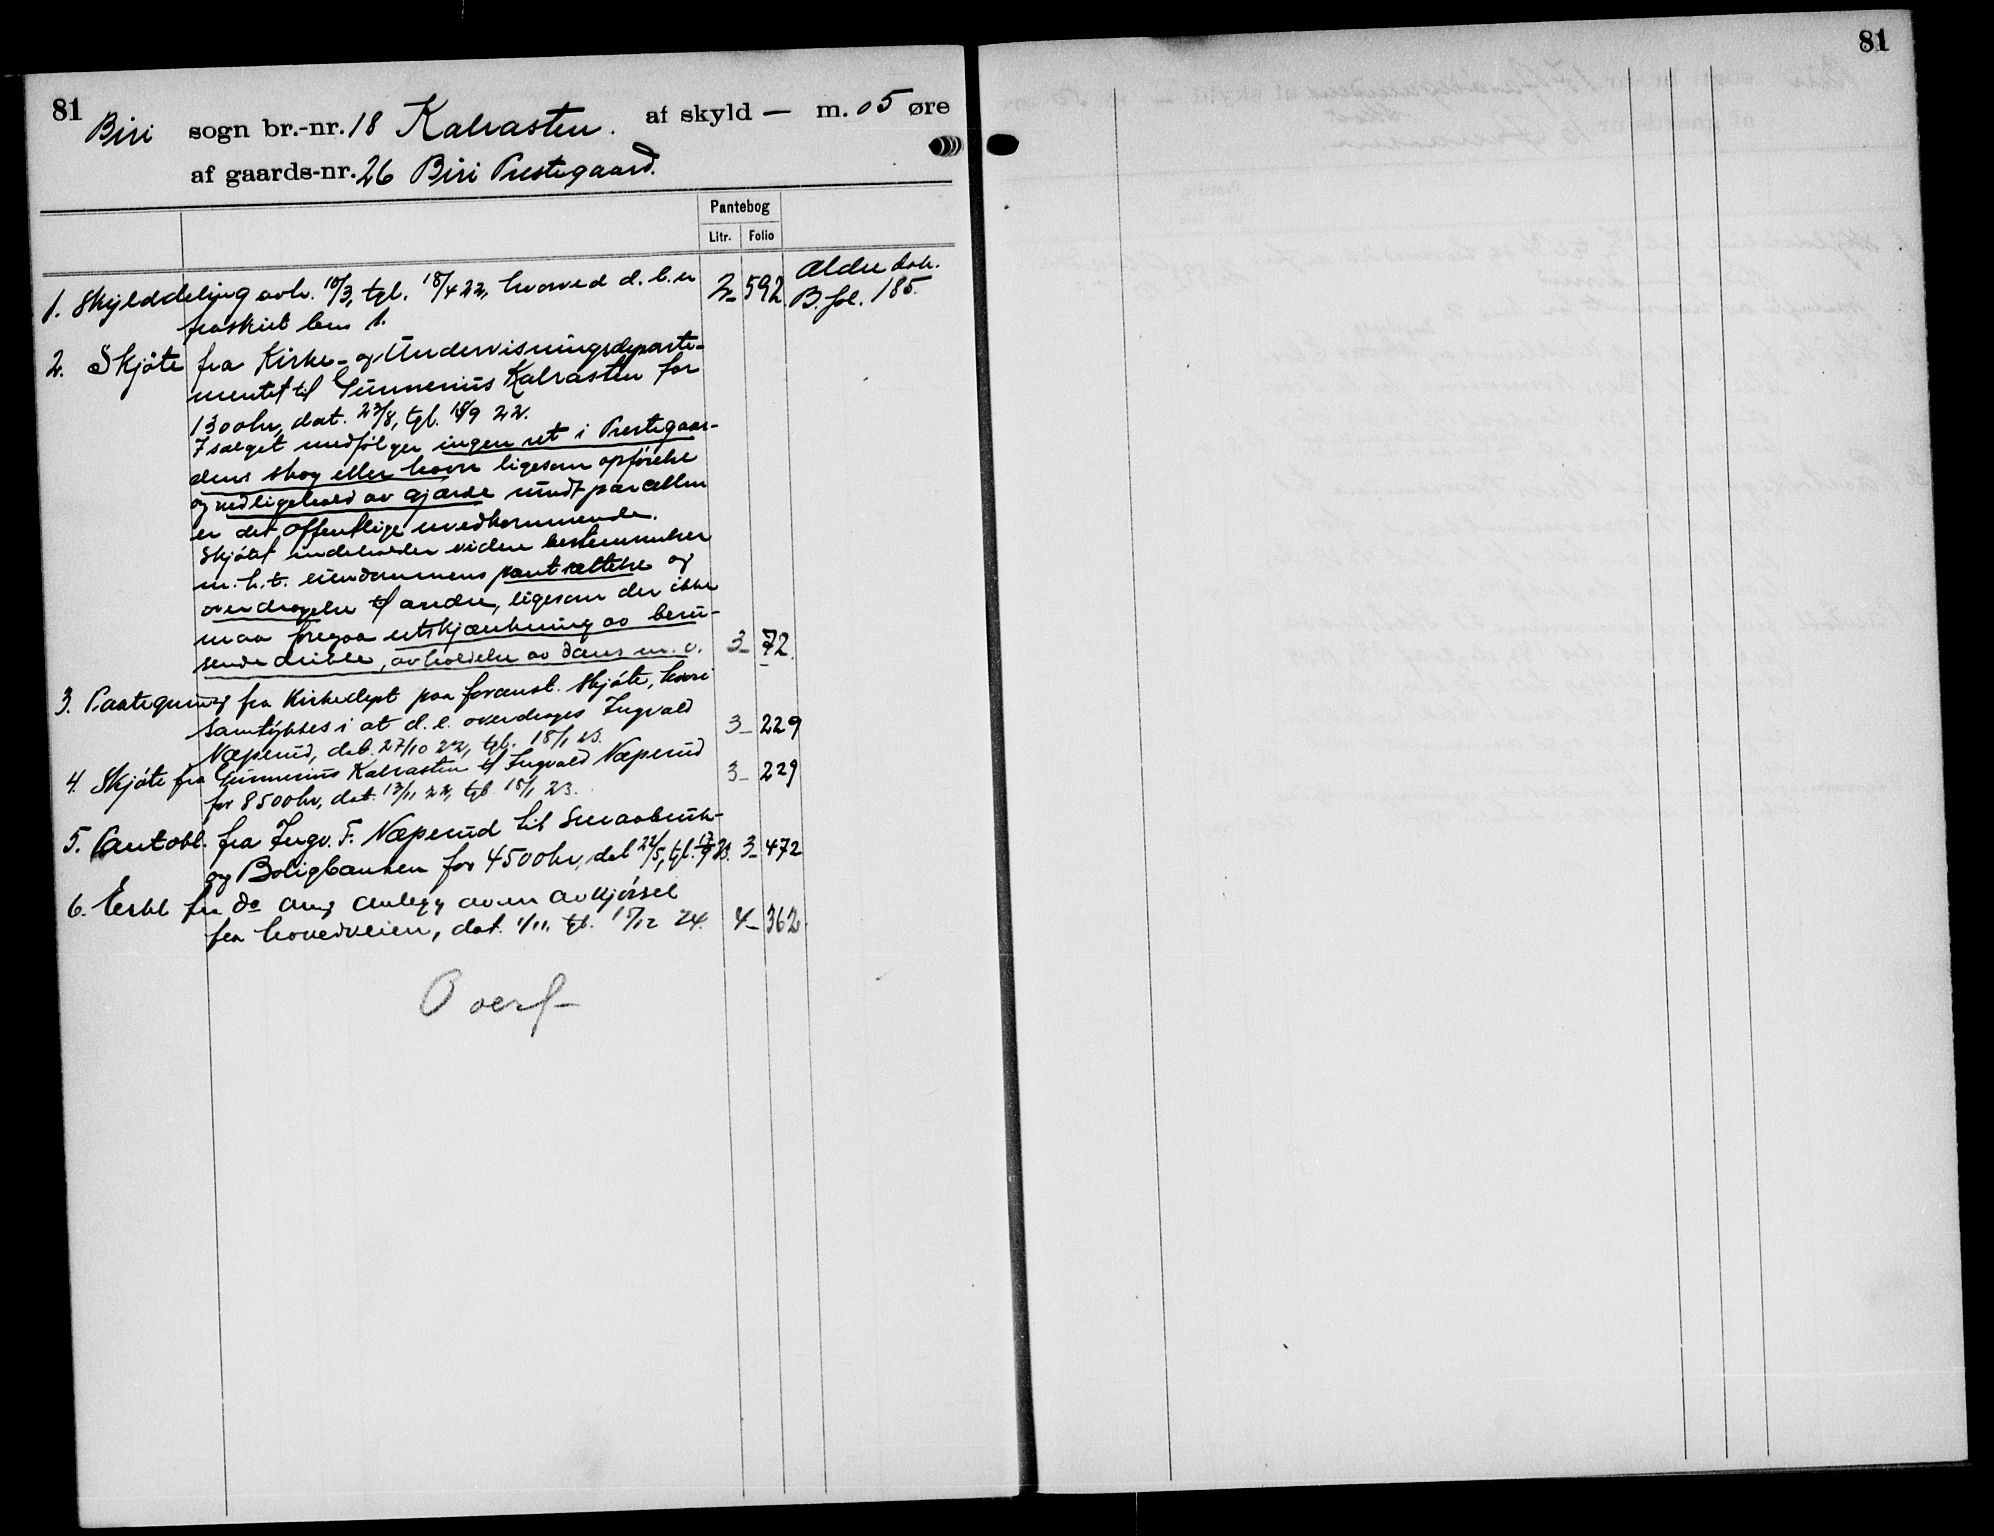 81
Biri sogn br.-nr. 18 Kalrasten. af skyld — m. 05 øre
af gaards-nr. 26 Biri Prestegaard.
Pantebog
Litr. Folio
1. Skylddeling avh. 10/3, tgl. 18/4 22, hvorved d. b. er 2 592 Ældre dok.
fraskilt bno 1. B. fol. 185.
2. Skjøte fra Kirke- og Undervisningsdeparte-
mentet til Gunnerius Kalrasten for
1300 kr, dat. 23/8, tgl. 18/9 22.
I salget medfølger ingen ret i Prestegaar-
dens skog eller havn ligesom opførelse
og vedligehold av gjærde rundt parcellen
er det offentlige uvedkommende.
Skjøtet indeholder videre bestemmelser
m. h. t. eiendommens pantsættelse og
overdragelse til andre, ligesom der ikke
maa foregaa utskjænkning av beru-
sende drikke, avholdelse av dans m. v. 3 72
3. Paategning fra Kirkedept paa foranst. skjøte, hvori
samtykkes i at d. e. overdrages Ingvald
Næperud, dat. 27/10 22, tgl. 18/1 23. 3 229
4. Skjøte fra Gunnerius Kalrasten til Ingvald Næperud 3 229
for 8500 kr, dat. 13/11 22, tgl. 18/1 23.
5. Pantobl. fra Ingv. F. Næperud til Smaabruk-
og Boligbanken for 4500 kr, dat 22/5, tgl. 17/9 23. 3 472
6. Erkl fra do ang anlegg av en avkjørsel
fra hovedveien, dat. 1/11, tgl. 15/12 24. 4 362
Overf
81